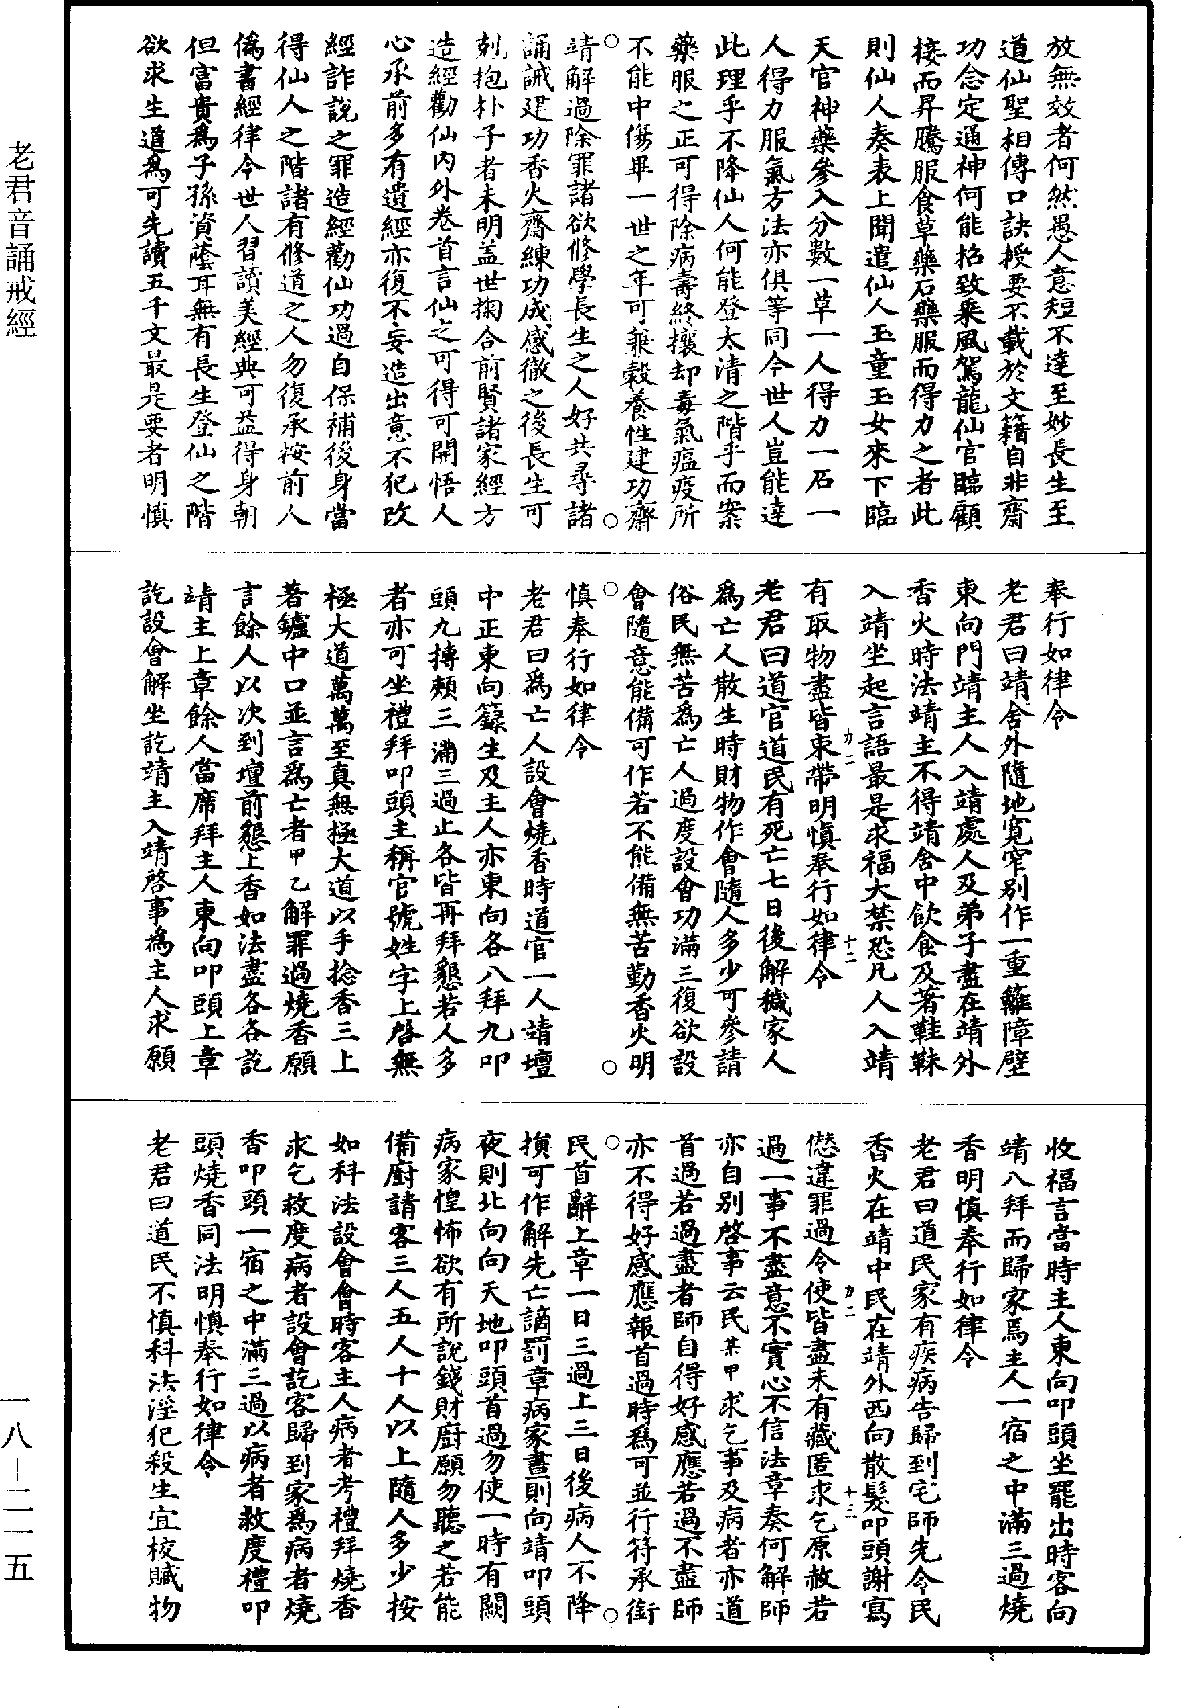 老君音誦戒經
放無效者何然愚人意短不達至妙長生至
道仙聖相傳口訣授要不載於文籍自非齋
功念定通神何能招致乘風駕龍仙官臨顧
接而昇騰服食草藥石藥服而得力之者此
則仙人奏表上聞遣仙人玉童玉女來下臨
天官神藥參入分數一草一人得力一石一
人得力服氣方法亦俱等同今世人豈能達
此理乎不降仙人何能登太清之階乎而案
藥服之正可得除病壽終攘却毒氣瘟疫所
不能中傷畢一世之年可兼穀養性建功齋
靖解過除罪諸欲修學長生之人好共尋諸
誦誡建功香火齋練功成感徹之後長生可
剋抱朴子者未明蓋世掬合前賢諸家經方
造經勸仙內外卷首言仙之可得可開悟人
心承前多有遺經亦復不妄造出意不犯改
經詐說之罪造經勸仙功過自保補後身當
得仙人之階諸有修道之人勿復承按前人
僞書經律今世人習讀美經典可益得身朝
但富貴爲子孫資蔭耳無有長生登仙之階
欲求生道爲可先讀五千文最是要者明慎
奉行如律令
老君曰靖舍外隨地寬窄別作一重籬障壁
東向門靖主人入靖處人及弟子盡在靖外
香火時法靖主不得靖舍中飲食及著鞋靺
入靖坐起言語最是求福大禁恐凡人入靖
有取物盡皆束帶明慎奉行如律令
力二
十二
老君曰道官道民有死亡七日後解穢家人
爲亡人散生時財物作會隨人多少可參請
俗民無苦爲亡人過度設會功滿三復欲設
會隨意能備可作若不能備無苦勤香火明
慎奉行如律令
老君曰爲亡人設會燒香時道官一人靖壇
中正東向籙生及主人亦東向各八拜九叩
頭九搏頰三滿三過止各皆再拜懇若人多
者亦可坐禮拜叩頭主稱官號姓字上啓無
極大道萬萬至真無極大道以手捻香三上
著鑪中口並言爲亡者甲乙解罪過燒香願
言餘人以次到壇前懇上香如法盡各各訖
靖主上章餘人當席拜主人東向叩頭上章
訖設會解坐訖靖主入靖啓事爲主人求願
收福言當時主人東向叩頭坐罷出時客向
靖八拜而歸家焉主人一宿之中滿三過燒
香明慎奉行如律令
老君曰道民家有疾病告歸到宅師先令民
香火在靖中民在靖外西向散髮叩頭謝寫
愆違罪過令使皆盡未有藏匿求乞原赦若
力二
十三
過一事不盡意不實心不信法章奏何解師
亦自別啓事云民某甲求乞事及病者亦道
首過若過盡者師自得好感應若過不盡師
亦不得好感應報首過時爲可並行符承銜
民首辭上章一日三過上三日後病人不降
損可作解先亡謫罰章病家晝則向靖叩頭
夜則北向向天地叩頭首過勿使一時有闕
病家惶怖欲有所說錢財廚願勿聽之若能
備廚請客三人五人十人以上隨人多少按
如科法設會會時客主人病者考禮拜燒香
求乞救度病者設會訖客歸到家爲病者燒
香叩頭一宿之中滿三過以病者救度禮叩
頭燒香同法明慎奉行如律令
老君曰道民不慎科法淫犯殺生宜校贓物
一八-二一五